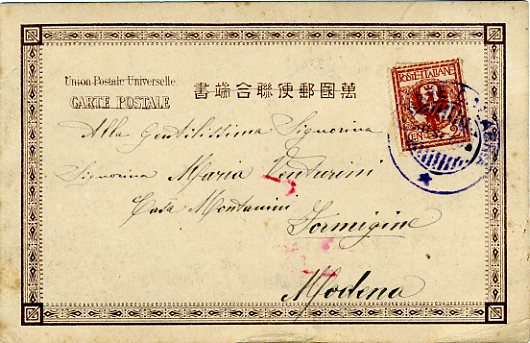 Union Postale Universelle
CARTE POSTALE
書端合聯便郵國萬
POSTE ITALIANE
2
Alla Gentilissima Signorina
Signorina Maria Venturini
Casa Montanini
Formigine
Modena